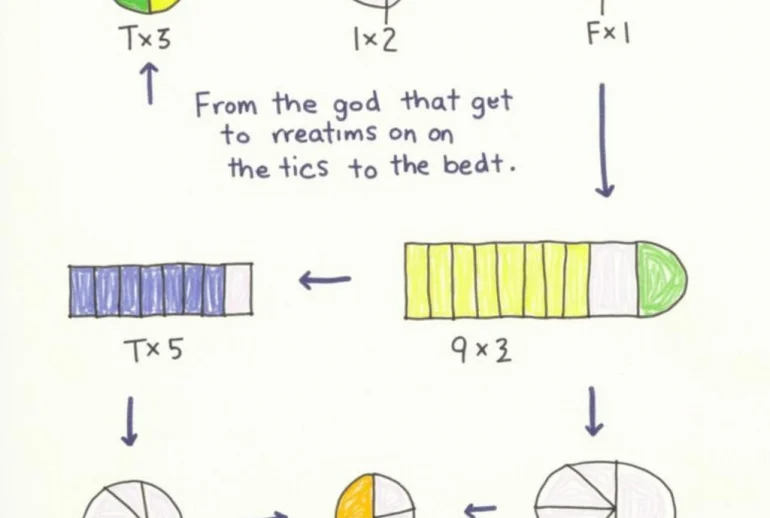 T×3
1×2
F×1
From the god that get
to rreatims on on
the tics to the bedt.
T×5
9×3